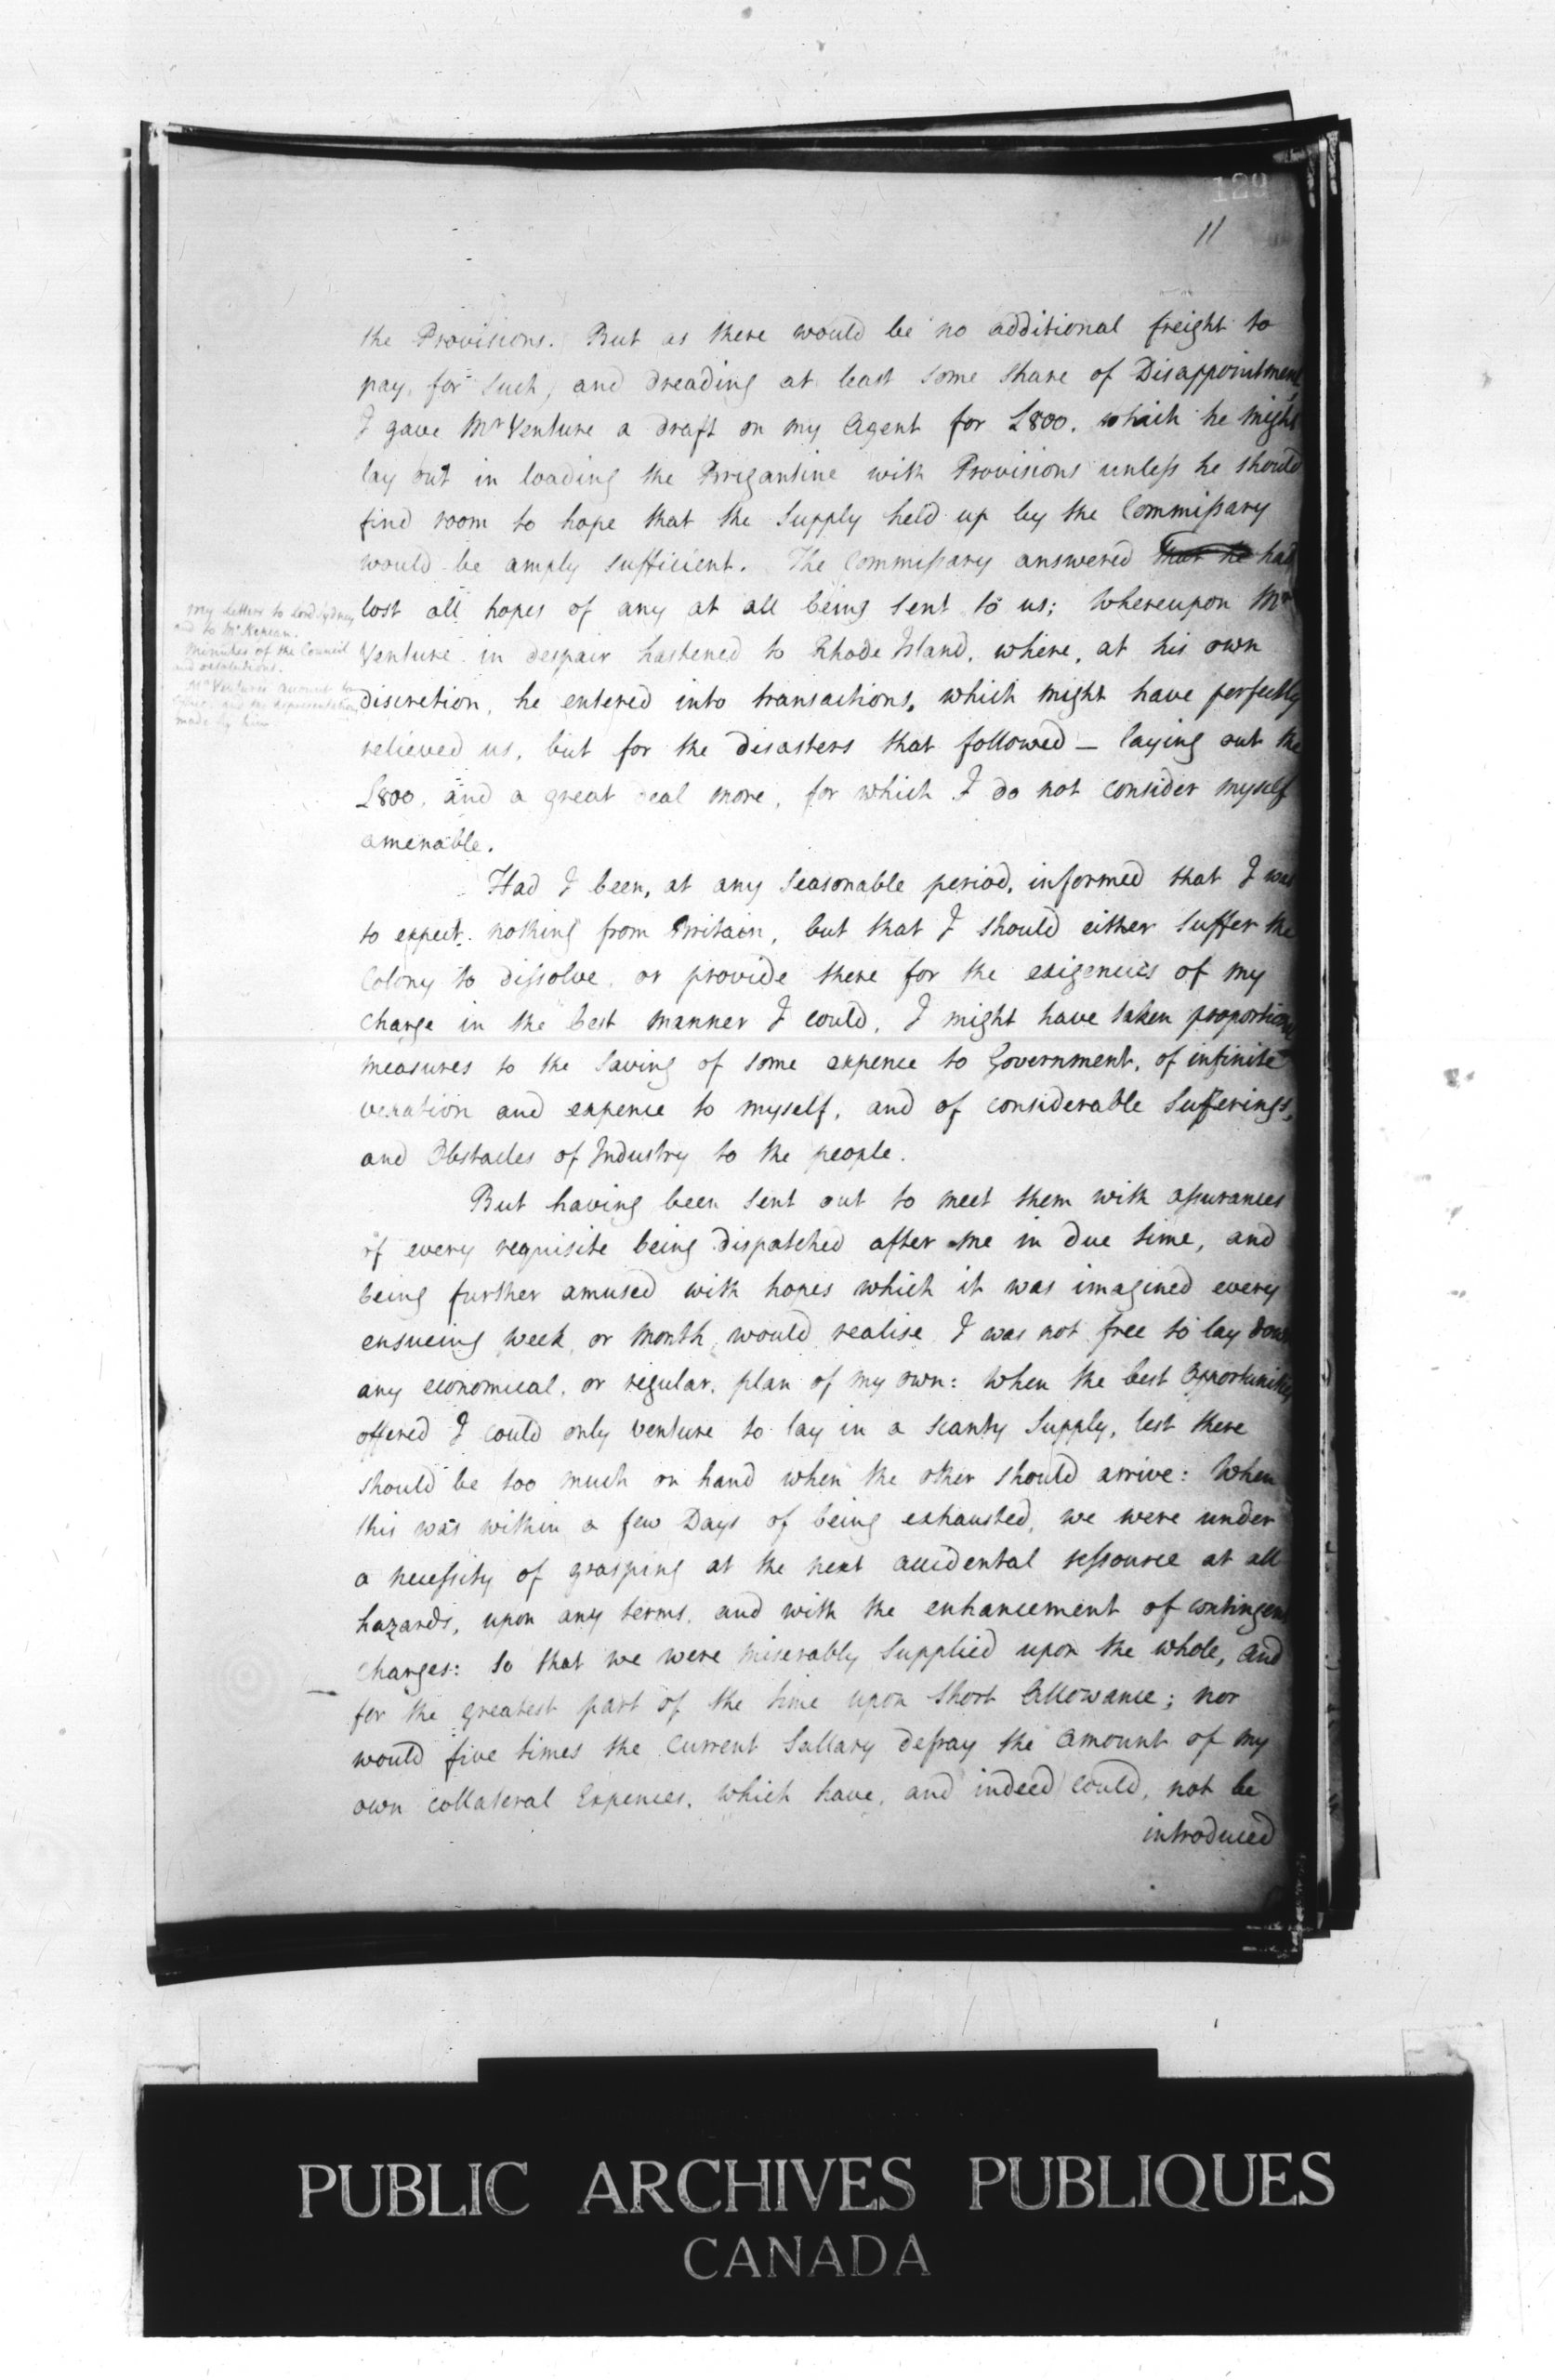 129
11
the Provisions. But as there would be no additional freight to
pay, for such, and dreading at least some share of Disappointment,
I gave Mr Venture a draft on my Agent for £800. which he might
lay out in loading the Brigantine with Provisions unless he should
find room to hope that the Supply held up by the Commissary
would be amply sufficient. The Commissary answered that he had
lost all hopes of any at all being sent to us; Whereupon Mr
Venture in despair hastened to Rhode Island, where, at his own
discretion, he entered into transactions, which might have perfectly
relieved us, but for the disasters that followed — laying out the
£800, and a great deal more, for which I do not consider myself
amenable.
My Letters to Lord Sydney
and to Mr Nepean.
Minutes of the Council
and resolutions.
Mr Ventures account
and the representation
made by him
Had I been, at any seasonable period, informed that I was
to expect nothing from Britain, but that I should either suffer the
Colony to dissolve, or provide there for the exigencies of my
charge in the best manner I could, I might have taken proportion
measures to the saving of some expence to Government, of infinite
vexation and expence to myself, and of considerable Sufferings,
and Obstacles of Industry to the people.
But having been sent out to meet them with assurances
of every requisite being dispatched after me in due time, and
being further amused with hopes which it was imagined every
ensueing week, or month, would realise I was not free to lay down
any economical, or regular, plan of my own: When the best Opportunities
offered I could only venture to lay in a scanty Supply, lest there
should be too much on hand when the other should arrive: When
this was within a few Days of being exhausted, we were under
a necessity of grasping at the next accidental ressource at all
hazards, upon any terms, and with the enhancement of contingent
charges: So that we were miserably supplied upon the whole, and
for the greatest part of the time upon short Allowance; nor
would five times the current Sallary defray the amount of my
own collateral Expences, which have, and indeed could, not be
introduced
PUBLIC ARCHIVES PUBLIQUES
CANADA